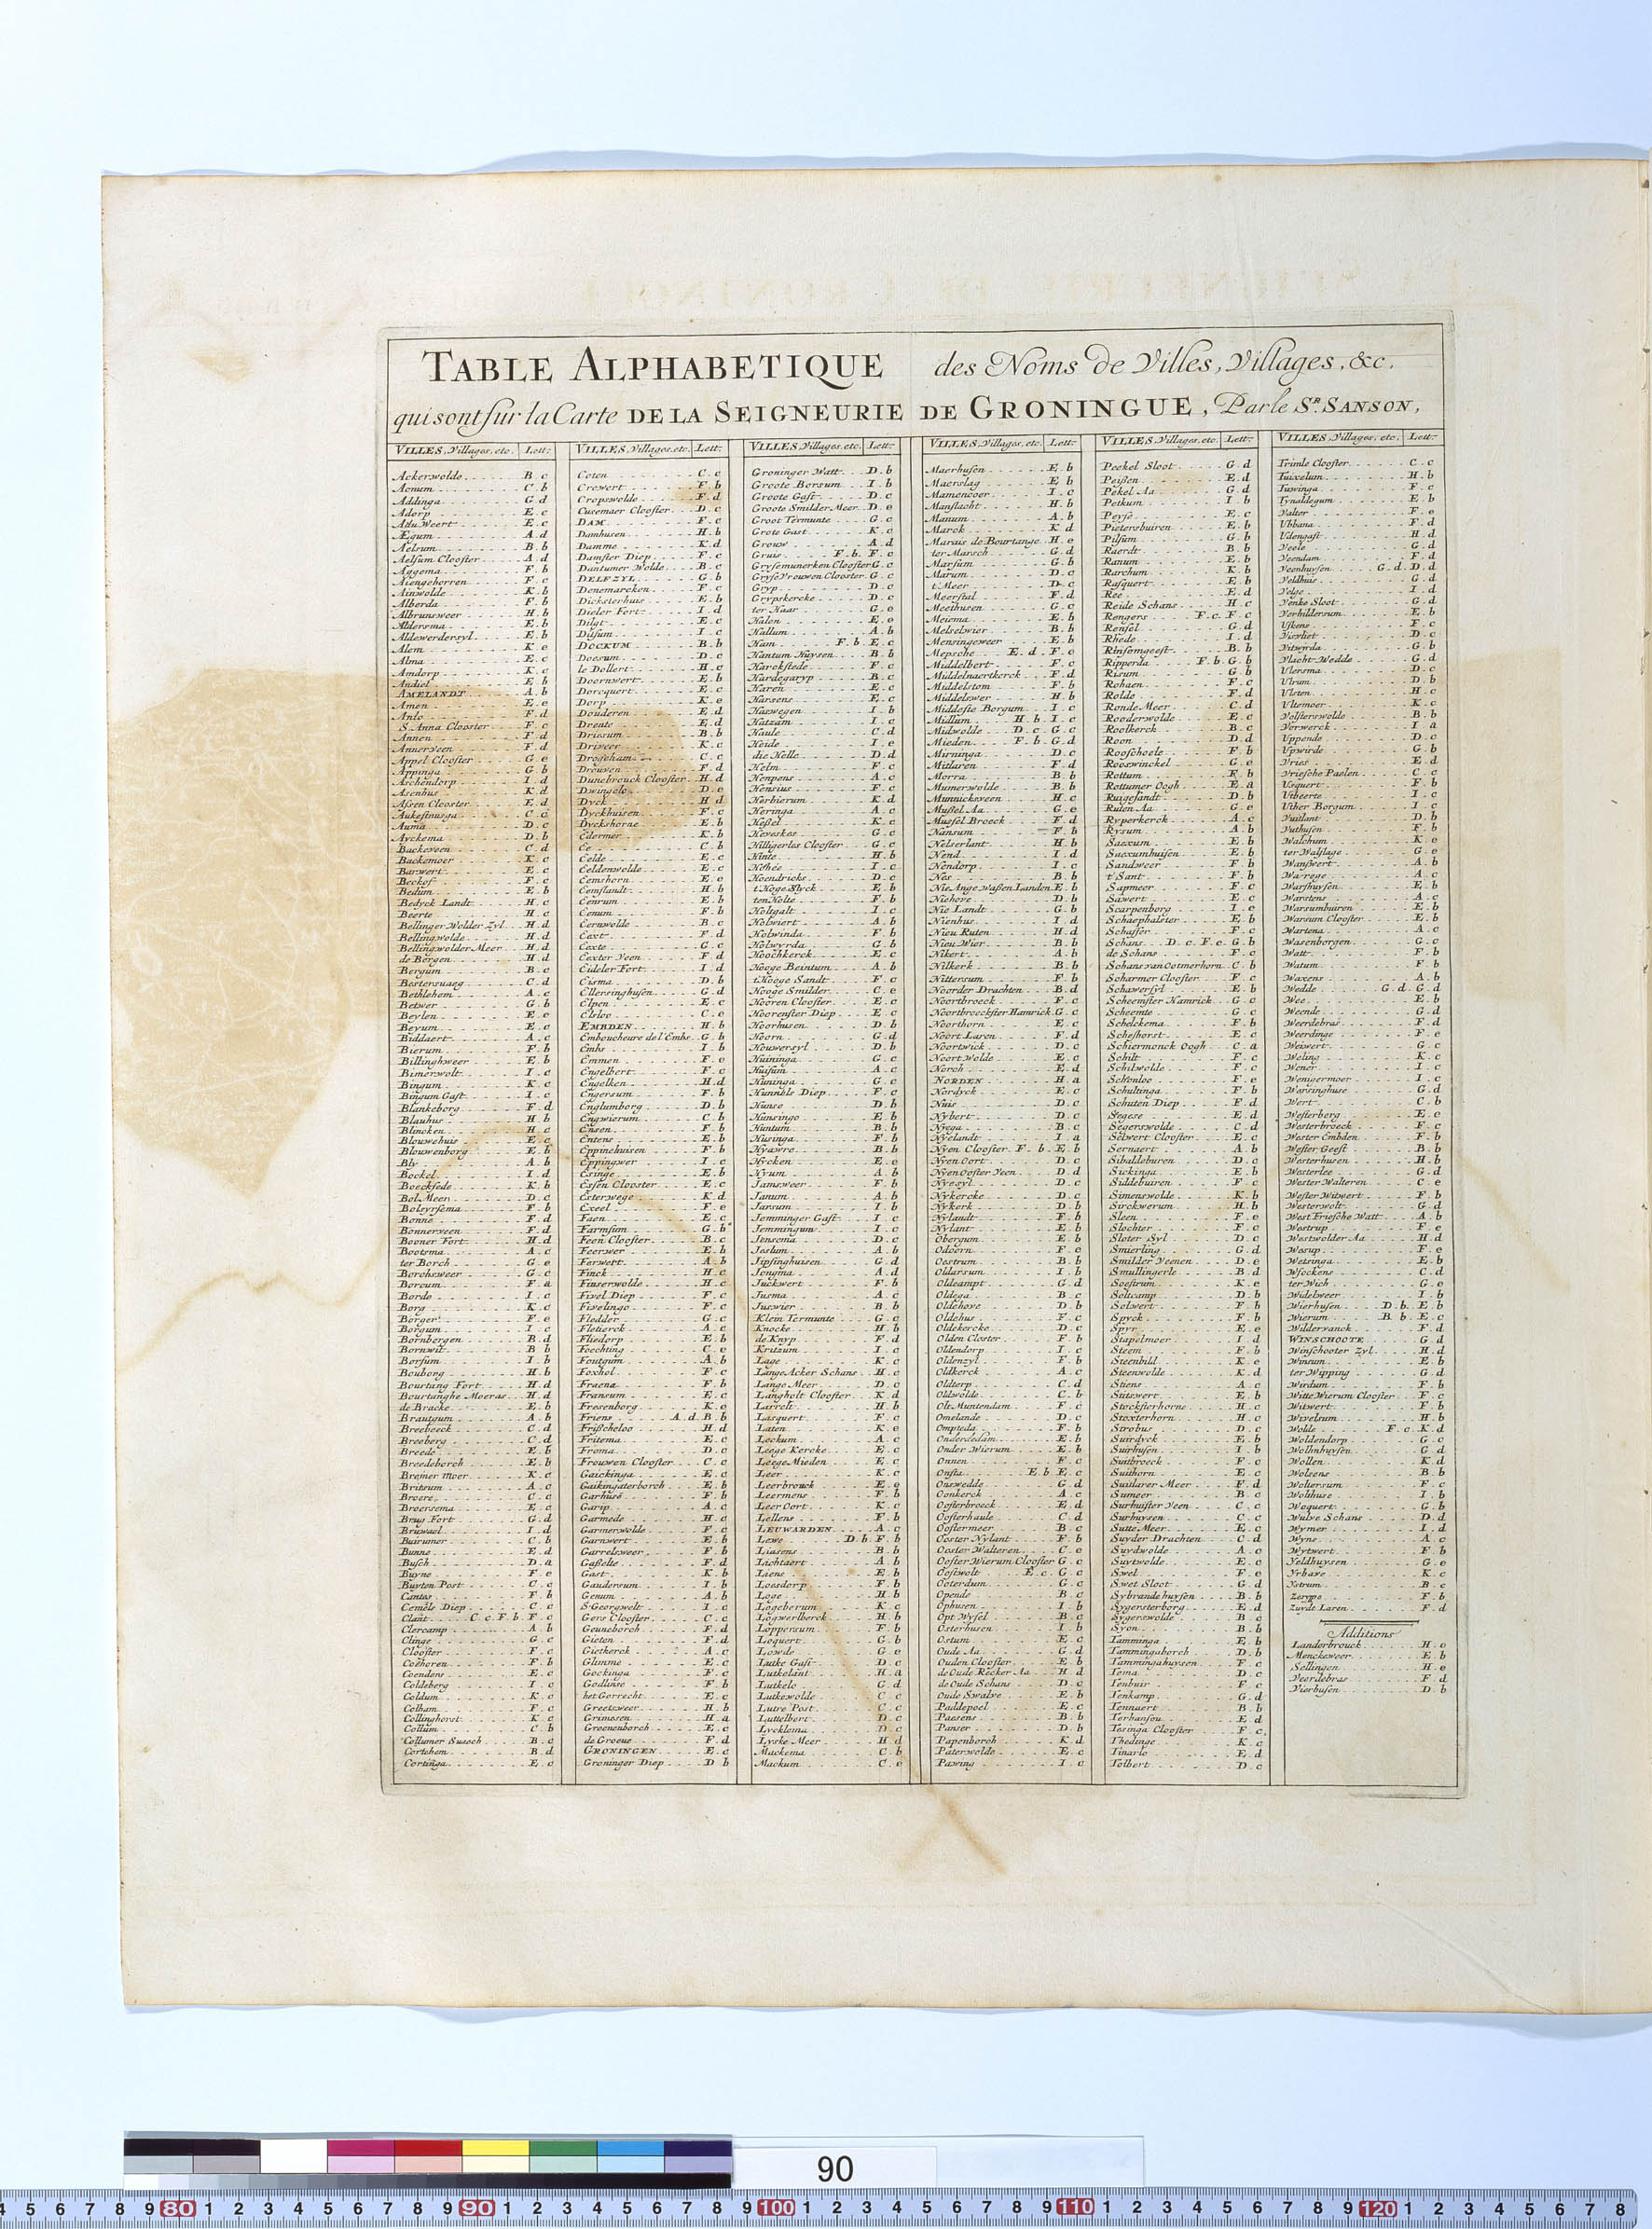 TABLE ALPHABETIQUE des Noms de Villes, Villages, &c.
qui sont sur la Carte DE LA SEIGNEURIE DE GRONINGUE, Par le Sr. SANSON,
VILLES, Villages, etc. Lett.
Ackerwolde B. c
Acnum C. b
Addinga G. d
Adorp E. c
Ægum A. d
Aelsum B. b
Aelsum Clooster A. d
Aggema F. b
Ainwolde K. b
Alberda F. b
Albrunsweer H. b
Aldersma E. b
Aldewerdersyl E. b
Alem K. e
Alma E. c
Amdorp K. c
Andiel E. b
AMELANDT A. b
Amen E. e
Anlo F. d
S. Anna Clooster F. c
Annen F. d
Annerveen F. d
Appel Clooster G. e
Appinga G. b
Aschendorp I. d
Asenhus K. d
Assen Clooster E. d
Auma D. c
Ayckema D. b
Backeveen C. d
Backemoer K. c
Barwert E. c
Beckof F. c
Bedum E. b
Bedyck Landt H. c
Beerte H. c
Bellinger Wolder Zyl H. d
Bellingwolde H. d
Bellingwolder Meer H. d
de Bergen H. d
Bergum B. c
Bethlehem A. c
Betwer G. b
Beylen E. e
Beyum E. c
Biddaert A. c
Bierum F. b
Billinghweer E. b
Bimerwolt I. c
Bingum K. c
Bingum Gast I. c
Blankeborg F. d
Blauhus H. b
Blincken H. c
Blouwehuis E. c
Blouwenborg E. b
Bly A. b
Bockel I. d
Boecksede K. b
Bol Meer D. c
Bolsyrsema F. b
Bonne F. d
Bonnerveen F. d
Booner Fort H. d
Bootsma A. c
ter Borch G. e
Borchsweer G. c
Borcum F. a
Borde I. c
Borg K. c
Borger F. e
Borgum I. c
Bornbergen B. d
Bornwit B. b
Borsum I. b
Bouborg H. b
Bourtang Fort H. d
Bourtanghe Moeras H. d
de Bracke E. b
Brautgum A. b
Breebeeck C. d
Breeberg C. d
Breede E. b
Breedeborch E. b
Bremer Moer K. c
Britsum A. c
Broere C. c
Broersema E. c
Brug Fort G. d
Bruwael I. d
Buirumer C. b
Bunne E. d
Busch D. a
Buyne F. e
Buyten Post C. c
Cantes F. b
Cemels Diep C. c
Clant C. c F. b. F. c
Clercamp A. b
Clinge G. c
Clooster F. c
Coehoren F. b
Coendens E. c
Coldeberg I. c
Coldum K. c
Colham F. c
Collinghorst K. c
Collum C. b
Collumer Susoch B. c
Cortehem B. d
Cortinga E. c
VILLES, Villages, etc. Lett.
Coten C. c
Crewert F. b
Cropswolde F. d
Cusemaer Clooster D. c
DAM F. c
Damhusen H. b
Damme K. d
Damster Diep F. c
Dantumer Wolde B. c
DELFZYL G. b
Denemarcken F. c
Dicksterhuis E. b
Dieler Fort I. d
Dilgt E. c
Dilsum I. c
DOCKUM B. b
Doesum D. c
le Dollert H. c
Doornwert E. b
Dorcquert E. c
Dorp K. e
Douderen E. d
Drente E. d
Driesum B. b
Driveer K. c
Drogeham C. c
Drouwen F. d
Dunebrouck Clooster H. d
Dwingelo D. e
Dyck H. d
Dyckhuisen F. c
Dyckshorne E. b
Edermer K. b
Ee C. b
Eelde E. c
Eeldenwolde E. c
Eemshorn E. c
Eemslandt H. b
Eenrum E. b
Eenum F. b
Eernwolde B. c
Eext F. d
Eexte G. c
Eexter Veen F. d
Eideler Fort I. d
Eisma D. b
Ellersinghusen G. d
Elpen E. c
Elsloo C. e
EMBDEN H. b
Emboucheure de l'Embs G. b
Embs I. b
Emmen F. e
Engelbert F. c
Engelken H. d
Engersum F. b
Englumborg D. b
Engwierum C. b
Ensen F. b
Entens E. b
Eppinehuisen F. b
Eppingwer I. c
Esinge E. b
Essen Clooster E. c
Esterwege K. d
Exeel F. e
Faen E. c
Farmsum G. b
Feen Clooster B. c
Feerwer E. b
Ferwert A. b
Finck H. c
Finserwolde H. c
Fivel Diep F. c
Fivelingo F. c
Fledder G. c
Fletierck A. c
Fliedorp E. b
Foechting C. e
Foutgum A. b
Foxhol F. c
Fraena F. b
Fransum E. c
Fresenborg K. e
Friens A. d B. b
Frisscheloo H. d
Fritema E. c
Froma D. c
Frouwen Clooster C. c
Gaickinga E. c
Gaikingaterborch E. b
Garhuse F. b
Garip A. c
Garmede H. c
Garmerwolde F. c
Garnwert E. b
Garrelsweer F. b
Gasselte F. d
Gast K. b
Gaudersum I. b
Genum A. b
S. Georgwelt I. c
Gere Clooster C. c
Geuneborch F. d
Gieten F. d
Gietkerck A. c
Glimme E. c
Gockinga F. c
Godlinse F. b
het Gorrecht E. c
Greetsweer H. b
Grimesen H. a
Groenenborch E. c
de Groeve F. d
GRONINGEN E. c
Groninger Diep D. b
VILLES, Villages, etc. Lett.
Groninger Watt D. b
Groote Borsum I. b
Groote Gast D. c
Groote Smilder Meer D. e
Groot Termunte G. c
Grote Gast K. c
Grouw A. d
Gruis F. b. F. c
Grysemunerken Clooster G. c
Gryse Vrouwen Clooster G. c
Gryp D. c
Grypskercke D. c
ter Haar G. e
Halen E. e
Hallum A. b
Ham F. b. E. c
Hantum Huysen B. b
Harckstede F. c
Hardegaryp B. c
Haren E. c
Harsens E. c
Haswegen I. b
Hatzum I. c
Haule C. d
Heide I. e
die Helle D. d
Helm F. c
Hempens A. c
Hensius F. c
Herbierum K. d
Heringa F. c
Hessel K. c
Heveskes G. c
Hilligerlee Clooster G. c
Hinte H. b
Hoendricks D. c
t Hoge Slyck E. b
ten Holte F. b
Holtgalt I. c
Holwiert A. b
Holwinda F. b
Holwyrda G. b
Hoochkerck E. c
Hooge Beintum A. b
t Hooge Sandt F. c
Hooge Smilder C. e
Hooren Clooster E. c
Hoorenster Diep E. c
Hoorhusen D. b
Hoorn G. d
Houwersyl D. b
Huininga G. c
Huisum A. c
Huninga G. c
Hunnels Diep F. c
Hunse D. b
Hunsingo E. b
Huntum B. b
Husinga F. b
Hyawre B. b
Hycken E. e
Hyum A. b
Jamsweer F. b
Janum A. b
Jarsum I. b
Jemminger Gast I. c
Jemmingum I. c
Jensema D. c
Jeslum A. b
Jipsinghuisen G. d
Jongma A. d
Juckwert F. b
Jusma A. c
Juswier B. b
Klein Termunte G. c
Knocke H. b
de Knyp F. d
Kritzum I. c
Lage K. c
Lange Acker Schans H. c
Lange Meer D. c
Langholt Clooster K. d
Larrelt H. b
Lasquert F. c
Laten K. e
Leckum A. c
Leege Kercke E. c
Leege Mieden E. c
Leer K. c
Leerbrouck E. e
Leermens F. b
Leer Oort K. c
Lellens F. b
LEUWARDEN A. c
Lewe D. b F. b
Liasens B. b
Lichtaert A. b
Liens E. b
Loesdorp F. b
Loge H. b
Logeberum K. c
Logwerlberck H. b
Loppersum F. b
Loquert G. b
Lowde G. e
Lutke Gast D. c
Lutkelant H. a
Lutkelo G. d
Lutkewolde C. c
Lutre Post C. c
Luttelbert D. c
Lyckloma D. c
Lyske Meer H. d
Mackema C. b
Mackum C. e
VILLES, Villages, etc. Lett.
Maerhusen E. b
Maerslag E. b
Mamencoer I. c
Manslacht H. b
Manum A. b
Marck K. d
Marais de Bourtange H. e
ter Marsch G. d
Marsum G. b
Marum D. c
t Meer D. c
Meerstal F. d
Meethusen G. c
Meisma E. b
Melselwier B. b
Mensingeweer E. b
Mepsche E. d. F. c
Middelbert F. c
Middelnaertkerck F. d
Middelstom F. b
Middelswer H. b
Middelste Borgum I. c
Midlum H. b I. c
Midwolde D. c G. c
Mieden F. b. G. d
Mirninga D. c
Mitlaren F. d
Morra B. b
Mumerwolde B. b
Munnicksveen H. c
Mussel Aa G. e
Mussel Broeck F. d
Nansum F. b
Nelserlant H. b
Nend I. d
Nendorp I. c
Nes B. b
Nie Ange Wassen Landen E. b
Niehove D. b
Nie Landt G. b
Nienhus I. d
Nieu Ruten H. d
Nieu Wier B. b
Nikert A. b
Nilkerk B. b
Nittersum F. b
Noorder Drachten B. d
Noortbroeck F. c
Noortbroeckster Hamrick G. c
Noorthorn E. c
Noort Laren F. d
Noortwick D. c
Noort Wolde E. c
Norch E. d
NORDEN H. a
Nordyck E. c
Nuis D. c
Nybert D. c
Nyega B. c
Nyelandt I. a
Nyen Clooster F. b. E. b
Nyen Oort D. c
Nyen Ooster Veen D. d
Nyesyl D. c
Nykercke D. c
Nykerk D. b
Nylandt F. b
Nylant E. b
Obergum E. b
Odoorn F. e
Oestrum B. b
Oldarsum I. b
Oldeampt G. d
Oldega B. c
Oldehove D. b
Oldehus F. c
Oldekercke D. c
Olden Closter F. b
Oldendorp I. c
Oldenzyl F. b
Oldkerck A. c
Oldterp C. d
Oldwolde C. b
Olt Muntendam F. c
Omelande D. c
Ompteda F. b
Onderdedam E. b
Onder Wierum E. b
Onnen F. c
Onsta E. b E. c
Onswedde G. d
Oonkerck A. c
Oosterbroeck E. d
Oosterhaule C. d
Oostermeer B. c
Ooster Nylant F. b
Ooster Walteren C. e
Ooster Wierum Clooster G. c
Oostwolt E. c. G. c
Ooterdum G. c
Opende B. c
Ophusen I. b
Opt Wysel B. c
Osterhusen I. b
Ostum E. c
Oude Aa G. d
Ouden Clooster E. b
de Oude Recker Aa H. d
de Oude Schans D. c
Oude Swalve E. b
Paddepoel E. c
Paesens B. b
Panser D. b
Papenborch K. d
Paterwolde E. c
Pawing I. c
VILLES, Villages, etc. Lett.
Peekel Sloot G. d
Peissen E. d
Pekel Aa G. d
Petkum I. b
Peyse E. c
Pietersbuiren E. b
Pilsum G. b
Raerdt B. b
Ranum E. b
Rarchum K. b
Rasquert E. b
Ree E. d
Reide Schans H. c
Rengers F. c. F. c
Rensel G. d
Rhede I. d
Rinsomgeest B. b
Ripperda F. b. G. b
Risum G. b
Rohaen F. c
Rolde F. d
Ronde Meer C. d
Rooderwolde E. c
Roolkerck B. c
Roon D. d
Rooschoele F. b
Rooswinckel G. e
Rottum F. b
Rottumer Oogh E. a
Ruigesandt D. b
Ruten Aa G. e
Ryperkerck A. c
Rysum A. b
Saexum E. b
Saexumhuisen E. b
Sandweer F. b
t' Sant F. b
Sapmeer F. c
Sawert E. c
Scarpenborg I. c
Schaephalster E. b
Schaffer F. c
Schans D. c. F. c. G. b
de Schans F. c
Schans van Ootmerhorn C. b
Scharmer Clooster F. c
Schawersyl E. b
Scheemster Hamrick G. c
Scheemte G. c
Schelckema F. b
Scheshorst E. c
Schiermonck Oogh C. a
Schilt F. c
Schilwolde F. c
Schonloo F. e
Schultinga F. b
Schuten Diep F. d
Segese E. d
Segerswolde C. d
Selwert Clooster E. c
Sernaert A. b
Sibaldeburen D. c
Sickinga E. b
Siddebuiren F. c
Simenswolde K. b
Sirckwerum H. b
Sleen F. e
Slochter F. c
Sloter Syl D. c
Smierling G. d
Smilder Veenen D. e
Smullingerle B. d
Soestrum K. e
Soltcamp D. b
Solwert F. b
Spyck F. b
Spyr E. e
Stapelmoer I. d
Steem F. b
Steenbild K. e
Steenwolde K. d
Stiens A. c
Stitswert E. b
Stocksterhorne H. c
Stoxterhorn H. c
Strobus D. c
Suirdyck E. b
Suirhusen I. b
Suitbroeck F. c
Suithorn E. c
Suitlarer Meer F. d
Sumeer B. c
Surhuister Veen C. c
Surhuysen C. c
Sutte Meer E. c
Suyder Drachten C. d
Suydwolde A. c
Suytwolde E. c
Swel F. e
Swet Sloot G. d
Sybrandehuysen B. b
Sygersterborg E. d
Sygerswolde B. c
Syon B. b
Tamminga E. b
Tammingaborch D. b
Tammingahuysen F. c
Tema D. c
Tenbuir F. c
Tenkamp G. d
Tennaert B. b
Terhansou E. d
Tesinga Clooster F. c
Thedinge K. c
Tinarlo E. d
Tolbert D. c
VILLES, Villages, etc. Lett.
Trimle Clooster C. c
Tuixelum H. b
Tuwinga F. c
Tynaldegum E. b
Valter F. e
Ubbena F. d
Udengast H. d
Veele G. d
Veendam F. d
Veenhuysen G. d. D. d
Veldhuis G. d
Velge I. d
Venke Sloot G. d
Verhildersum E. b
Uskens F. c
Visvliet D. c
Vitwyrda G. b
Vlacht Wedde G. d
Ulersma D. c
Ulrum D. b
Ulsten H. c
Ultemoer K. c
Volsterswolde B. b
Vorwerck I. a
Uppende D. c
Upwirde G. b
Vries E. d
Vriesche Paelen C. c
Usquert F. b
Utbeerte I. c
Uther Borgum I. c
Vuitlant D. b
Vuthusen F. b
Walchum K. e
ter Walslage G. e
Wansweert A. b
Warrege A. c
Warfhuysen E. b
Warstens A. c
Warsumbuiren E. b
Warsum Clooster E. b
Wartena A. c
Wasenborgen G. c
Watt F. b
Watum F. b
Waxens A. b
Wedde G. d. G. d
Wee E. b
Weende G. d
Weerdebras F. d
Weerdinge F. e
Weiwert G. c
Weling K. c
Wener I. c
Wenigermoer I. c
Wersinghuse G. d
Wert C. b
Westerberg E. c
Westerbroeck F. c
Wester Embden F. b
Wester Geest B. b
Westerhusen H. b
Westerlee G. d
Wester Walteren C. e
Wester Witwert F. b
Westerwolt G. d
West Friesche Watt A. b
Westrup F. e
Westwolder Aa H. d
Wesup F. e
Wetsinga E. b
Wsockens C. d
ter Wich G. e
Widelweer I. b
Wierhusen D. b. E. b
Wierum B. b. E. c
Wilderyanck F. d
WINSCHOOTE G. d
Winschooter Zyl H. d
Winsum E. b
ter Wipping G. d
Wirdum F. b
Witte Wierum Clooster F. c
Witwert F. b
Wivelsum H. b
Wolde F. c. K. d
Woldendorp G. c
Wollinhuysen G. d
Wollen K. d
Wolsens B. b
Woltersum F. c
Wolthuse I. b
Woquert G. b
Wulve Schans D. d
Wymer I. d
Wyns A. c
Wytwert F. b
Yeldhuysen G. e
Yrhave K. c
Ystrum B. c
Zerype F. b
Zuydt Laren F. d
Additions
Landerbrouck H. e
Menckeweer E. b
Sellingen H. e
Veerdebras F. d
Vierhusen D. b
90
4 5 6 7 8 9 80 1 2 3 4 5 6 7 8 9 90 1 2 3 4 5 6 7 8 9 100 1 2 3 4 5 6 7 8 9 110 1 2 3 4 5 6 7 8 9 120 1 2 3 4 5 6 7 8